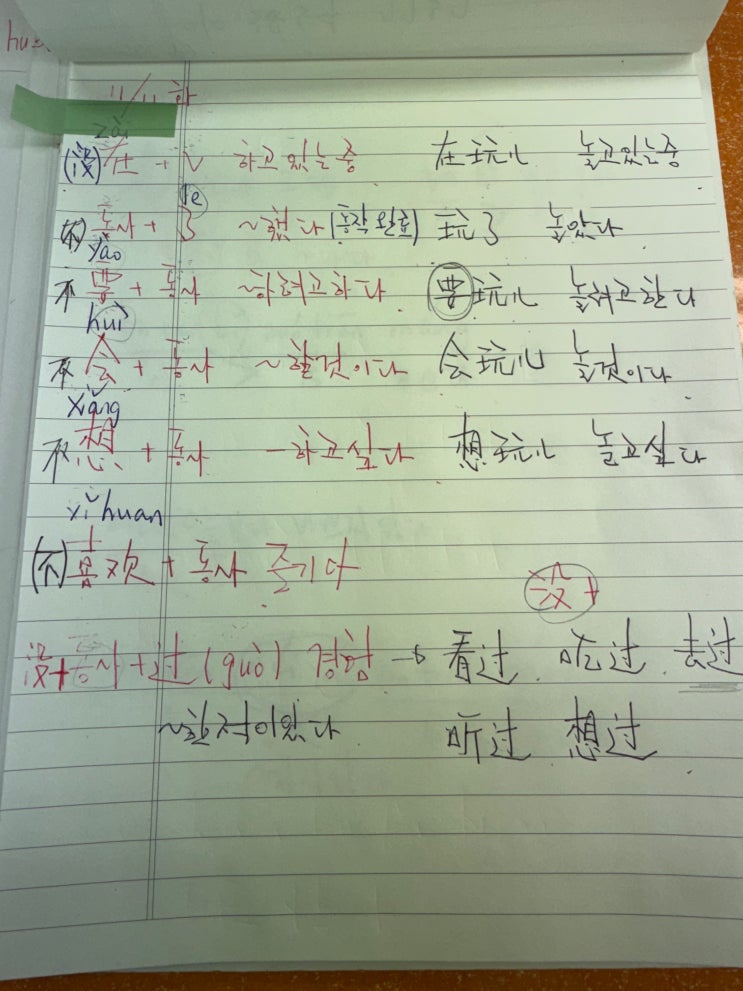 11/11 화
zài
(没) 在 + V 하고 있는 중 在玩儿 놀고있는중
le
동사 + 了 ~했다 (동작 완료) 玩了 놀았다
yào
不 要 + 동사 ~하려고하다 要玩儿 놀려고한다
huì
不 会 + 동사 ~할것이다 会玩儿 놀것이다
xiǎng
不 想 + 동사 ~하고싶다 想玩儿 놀고싶다
xǐhuan
(不) 喜欢 + 동사 즐기다
没 +
没+동사+过 (guò) 경험 → 看过. 吃过. 去过
~한적이있다 听过 想过